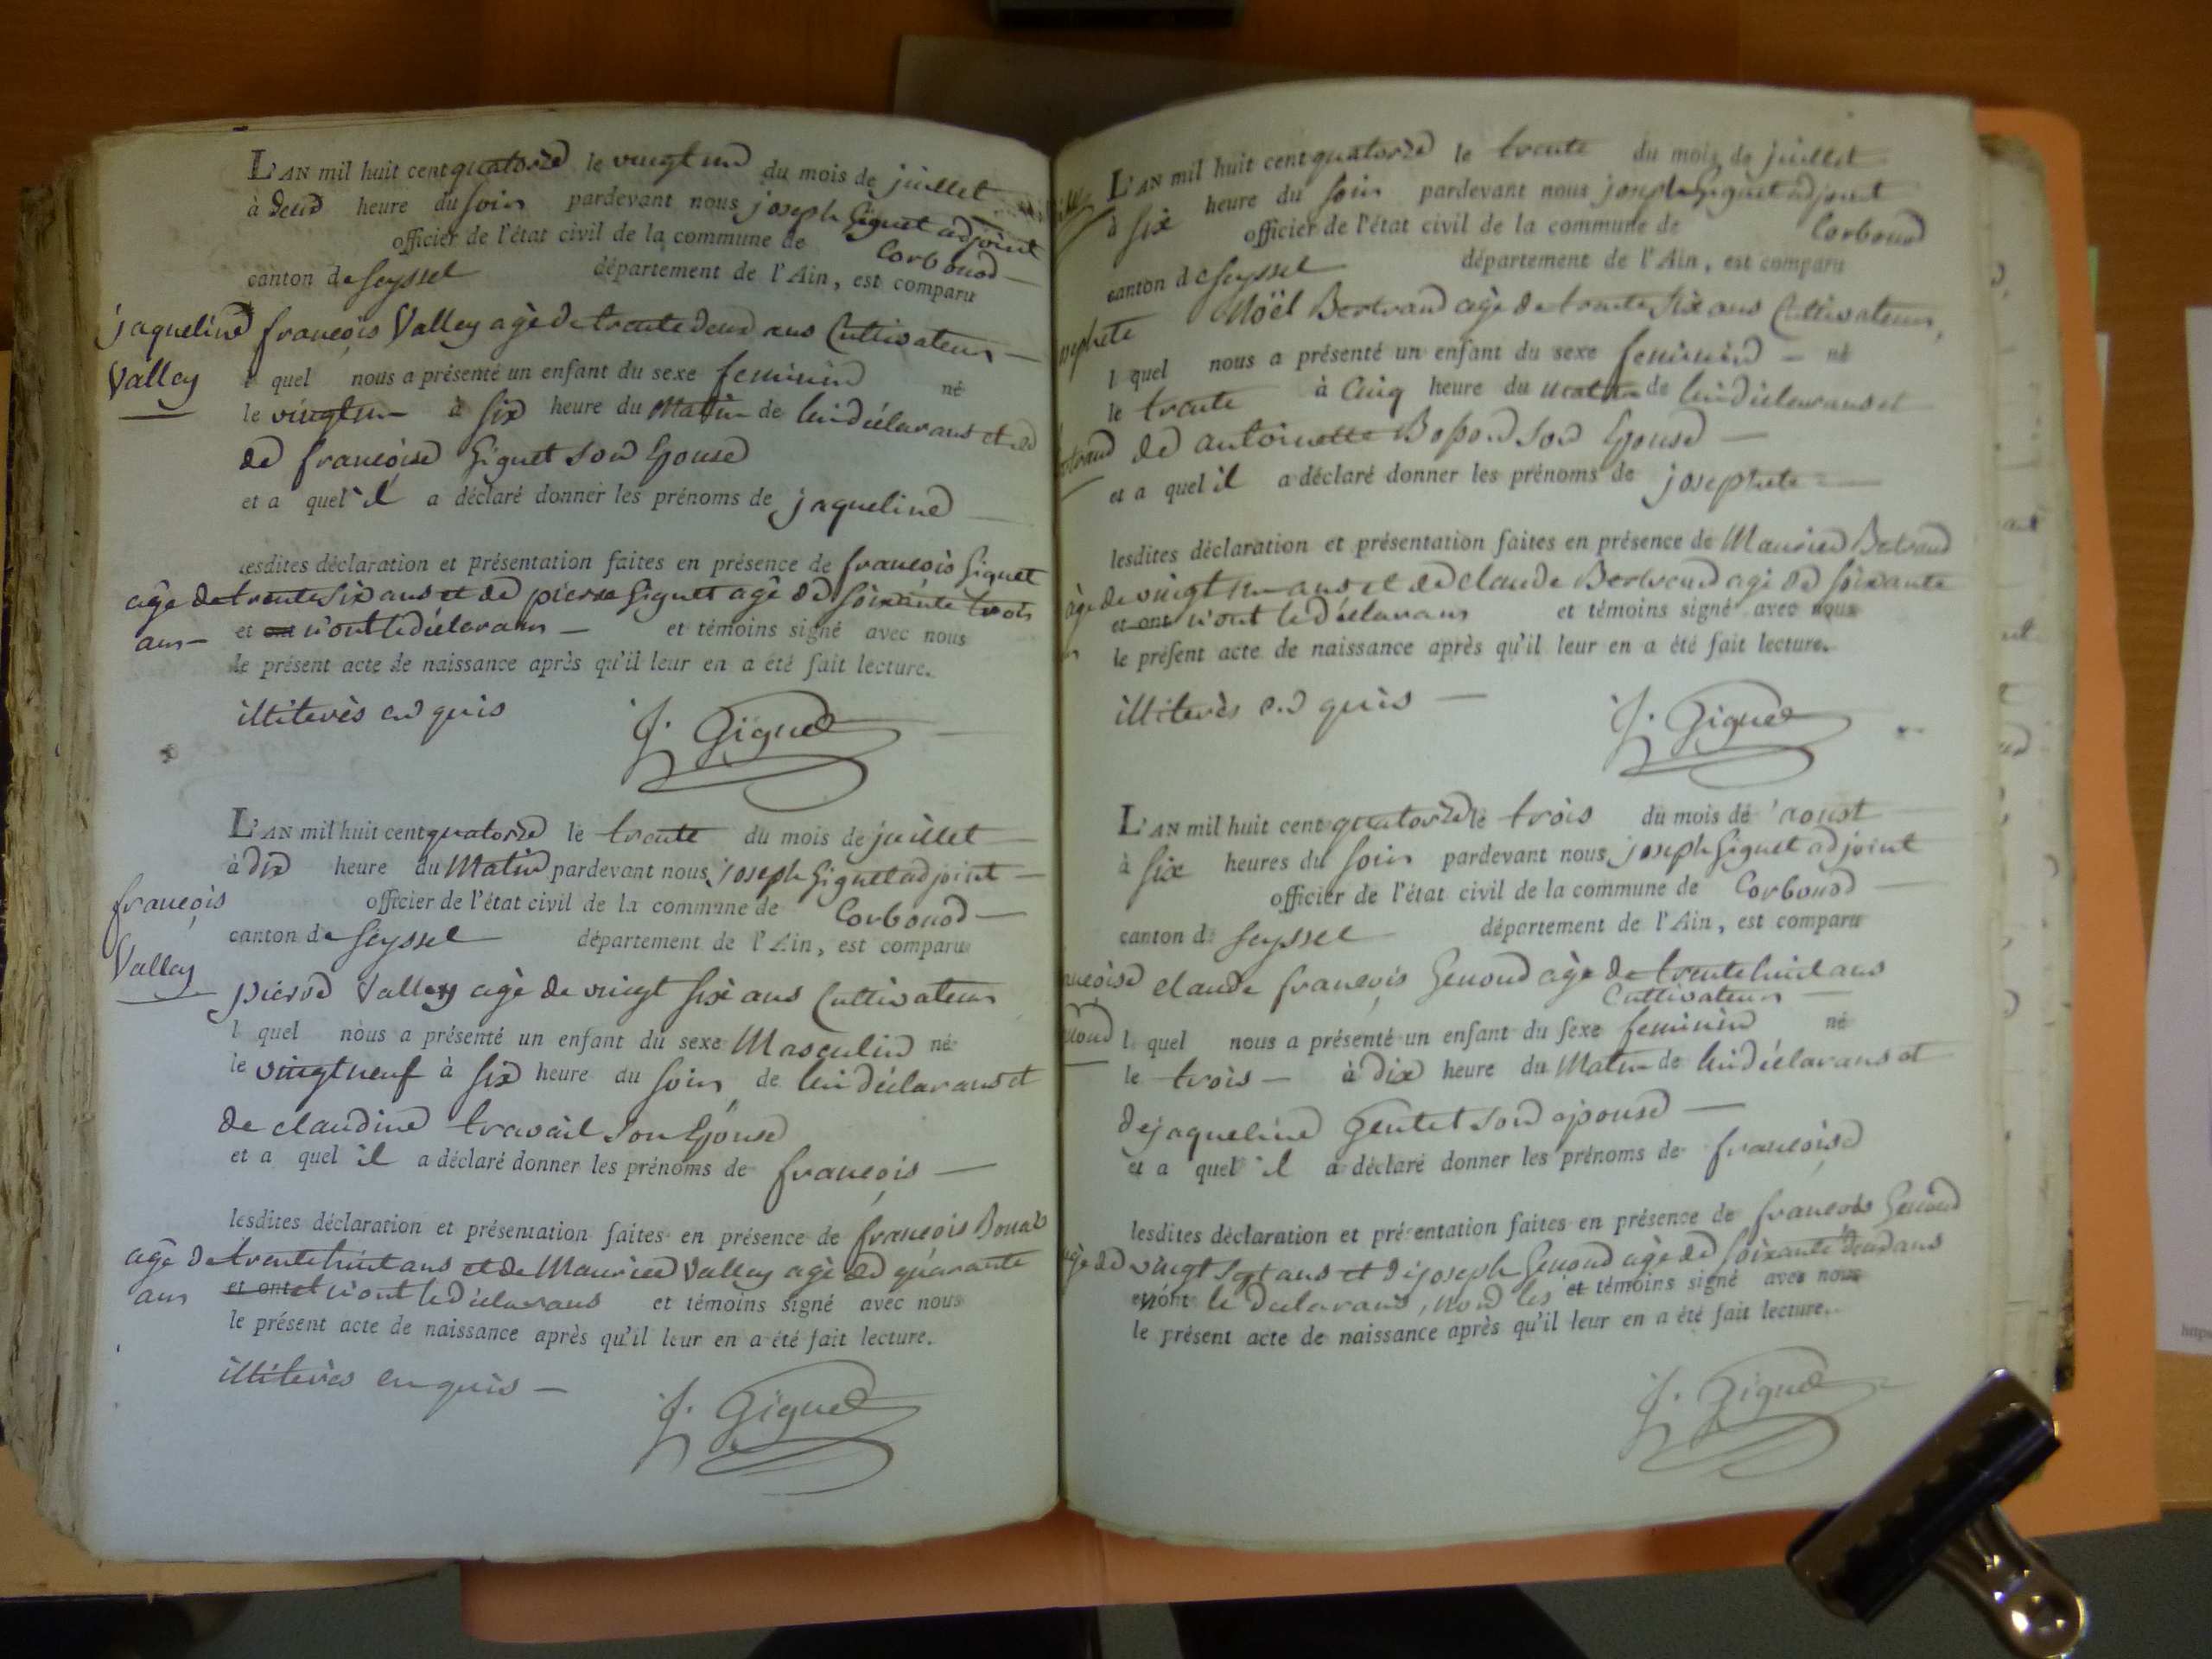 L'AN mil huit cent quatorze le vingt un du mois de juillet
à deux heure du soir pardevant nous joseph Giguet adjoint
officier de l'état civil de la commune de Corbonod
canton de Seyssel département de l'Ain, est comparu
jaqueline françois Valley agé de trente deux ans Cultivateur
Valley
l quel nous a présenté un enfant du sexe feminin né
le vingt un à six heure du Matin de lui déclarans et
de françoise Giguet son Epouse
et a quel il a déclaré donner les prénoms de jaqueline
lesdites déclaration et présentation faites en présence de françois Giguet
agé de trente six ans et de pierre Giguet agé de soixante trois
ans et n'ont le déclarans et témoins signé avec nous
le présent acte de naissance après qu'il leur en a été fait lecture.
illiterès en quis
J. Giguet
L'AN mil huit cent quatorze le trente du mois de juillet
à dix heure du Matin pardevant nous joseph Giguet adjoint
officier de l'état civil de la commune de Corbonod
françois
canton de Seyssel département de l'Ain, est comparu
Valley
pierre Valley agé de vingt six ans Cultivateur
l quel nous a présenté un enfant du sexe Masculin né
le vingt neuf à six heure du soir de lui déclarans et
de claudine travail son Epouse
et a quel il a déclaré donner les prénoms de françois
lesdites déclaration et présentation faites en présence de françois
agé de trente huit ans et de Maurice Valley agé de quarante
ans et ont et n'ont le déclarans et témoins signé avec nous
le présent acte de naissance après qu'il leur en a été fait lecture.
illiterès en quis
J. Giguet
L'AN mil huit cent quatorze le trente du mois de juillet
à six heure du soir pardevant nous joseph Giguet adjoint
officier de l'état civil de la commune de Corbonod
canton de Seyssel département de l'Ain, est comparu
Noël Bertrand agé de trente six ans Cultivateur
l quel nous a présenté un enfant du sexe feminin né
le trente à Cinq heure du matin de lui déclarans et
de antoinette Bosson son Epouse
et a quel il a déclaré donner les prénoms de josephete
lesdites déclaration et présentation faites en présence de Maurice Bertrand
agé de vingt un ans et de claude Bertrand agé de soixante
et ont n'ont le déclarans et témoins signé avec nous
le présent acte de naissance après qu'il leur en a été fait lecture.
illiterès en quis
J. Giguet
L'AN mil huit cent quatorze le trois du mois de aoust
à six heures du soir pardevant nous joseph Giguet adjoint
officier de l'état civil de la commune de Corbonod
canton de Seyssel département de l'Ain, est comparu
claude françois Genoud agé de trente huit ans
Cultivateur
l quel nous a présenté un enfant du sexe feminin né
le trois à dix heure du Matin de lui déclarans et
de jaqueline Gentet son epouse
et a quel il a déclaré donner les prénoms de françoise
lesdites déclaration et présentation faites en présence de françois Genoud
agé de vingt sept ans et de joseph Genoud agé de soixante deux ans
et n'ont le declarans, non les et témoins signé avec nous
le présent acte de naissance après qu'il leur en a été fait lecture.
J. Giguet